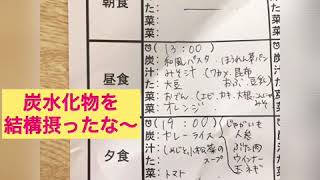 朝食
た:
菜:
菜:
昼食
(13:00)
炭: 和風パスタ ほうれん草パン
汁: みそ汁 (ワカメ、昆布
た: 大豆 お豆、豆乳)
菜: おでん (エビ、カキ、大根、こんにゃく
菜: オレンジ みそ
夕食
(19:00)
炭: カレーライス じゃがいも
人参
汁: (しめじと小松菜の ぶた肉
た: スープ ウインナー
菜: 玉ネギ
菜: トマト
炭水化物を
結構摂ったな〜